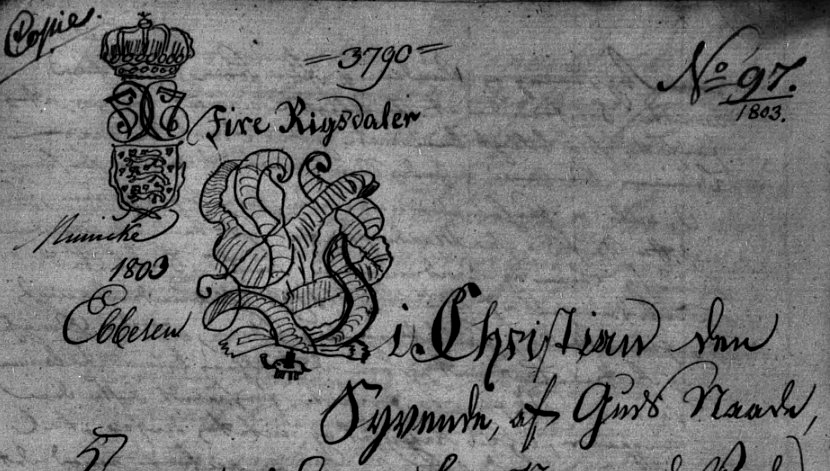 Copie.
=3790=
No 97.
1803.
Fire Rigsdaler
1803
Ebbesen
Vi Christian den
Syvende, af Guds Naade,